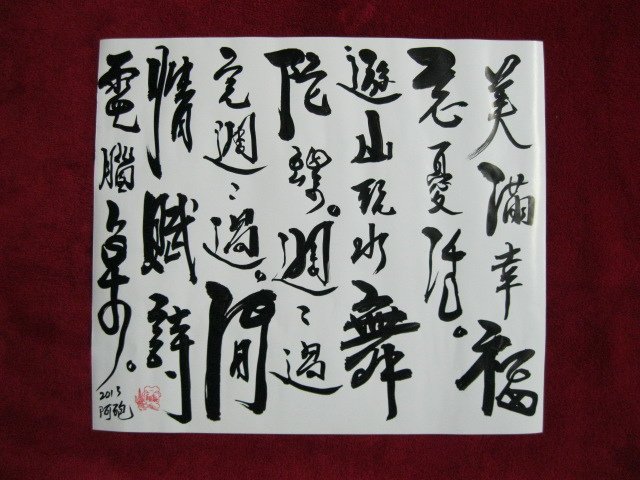 美滿幸福
忘憂活。
遊山玩水舞
陀螺。週〻過
完週〻過。閒
情賦詩
電腦桌。
2013
阿砲